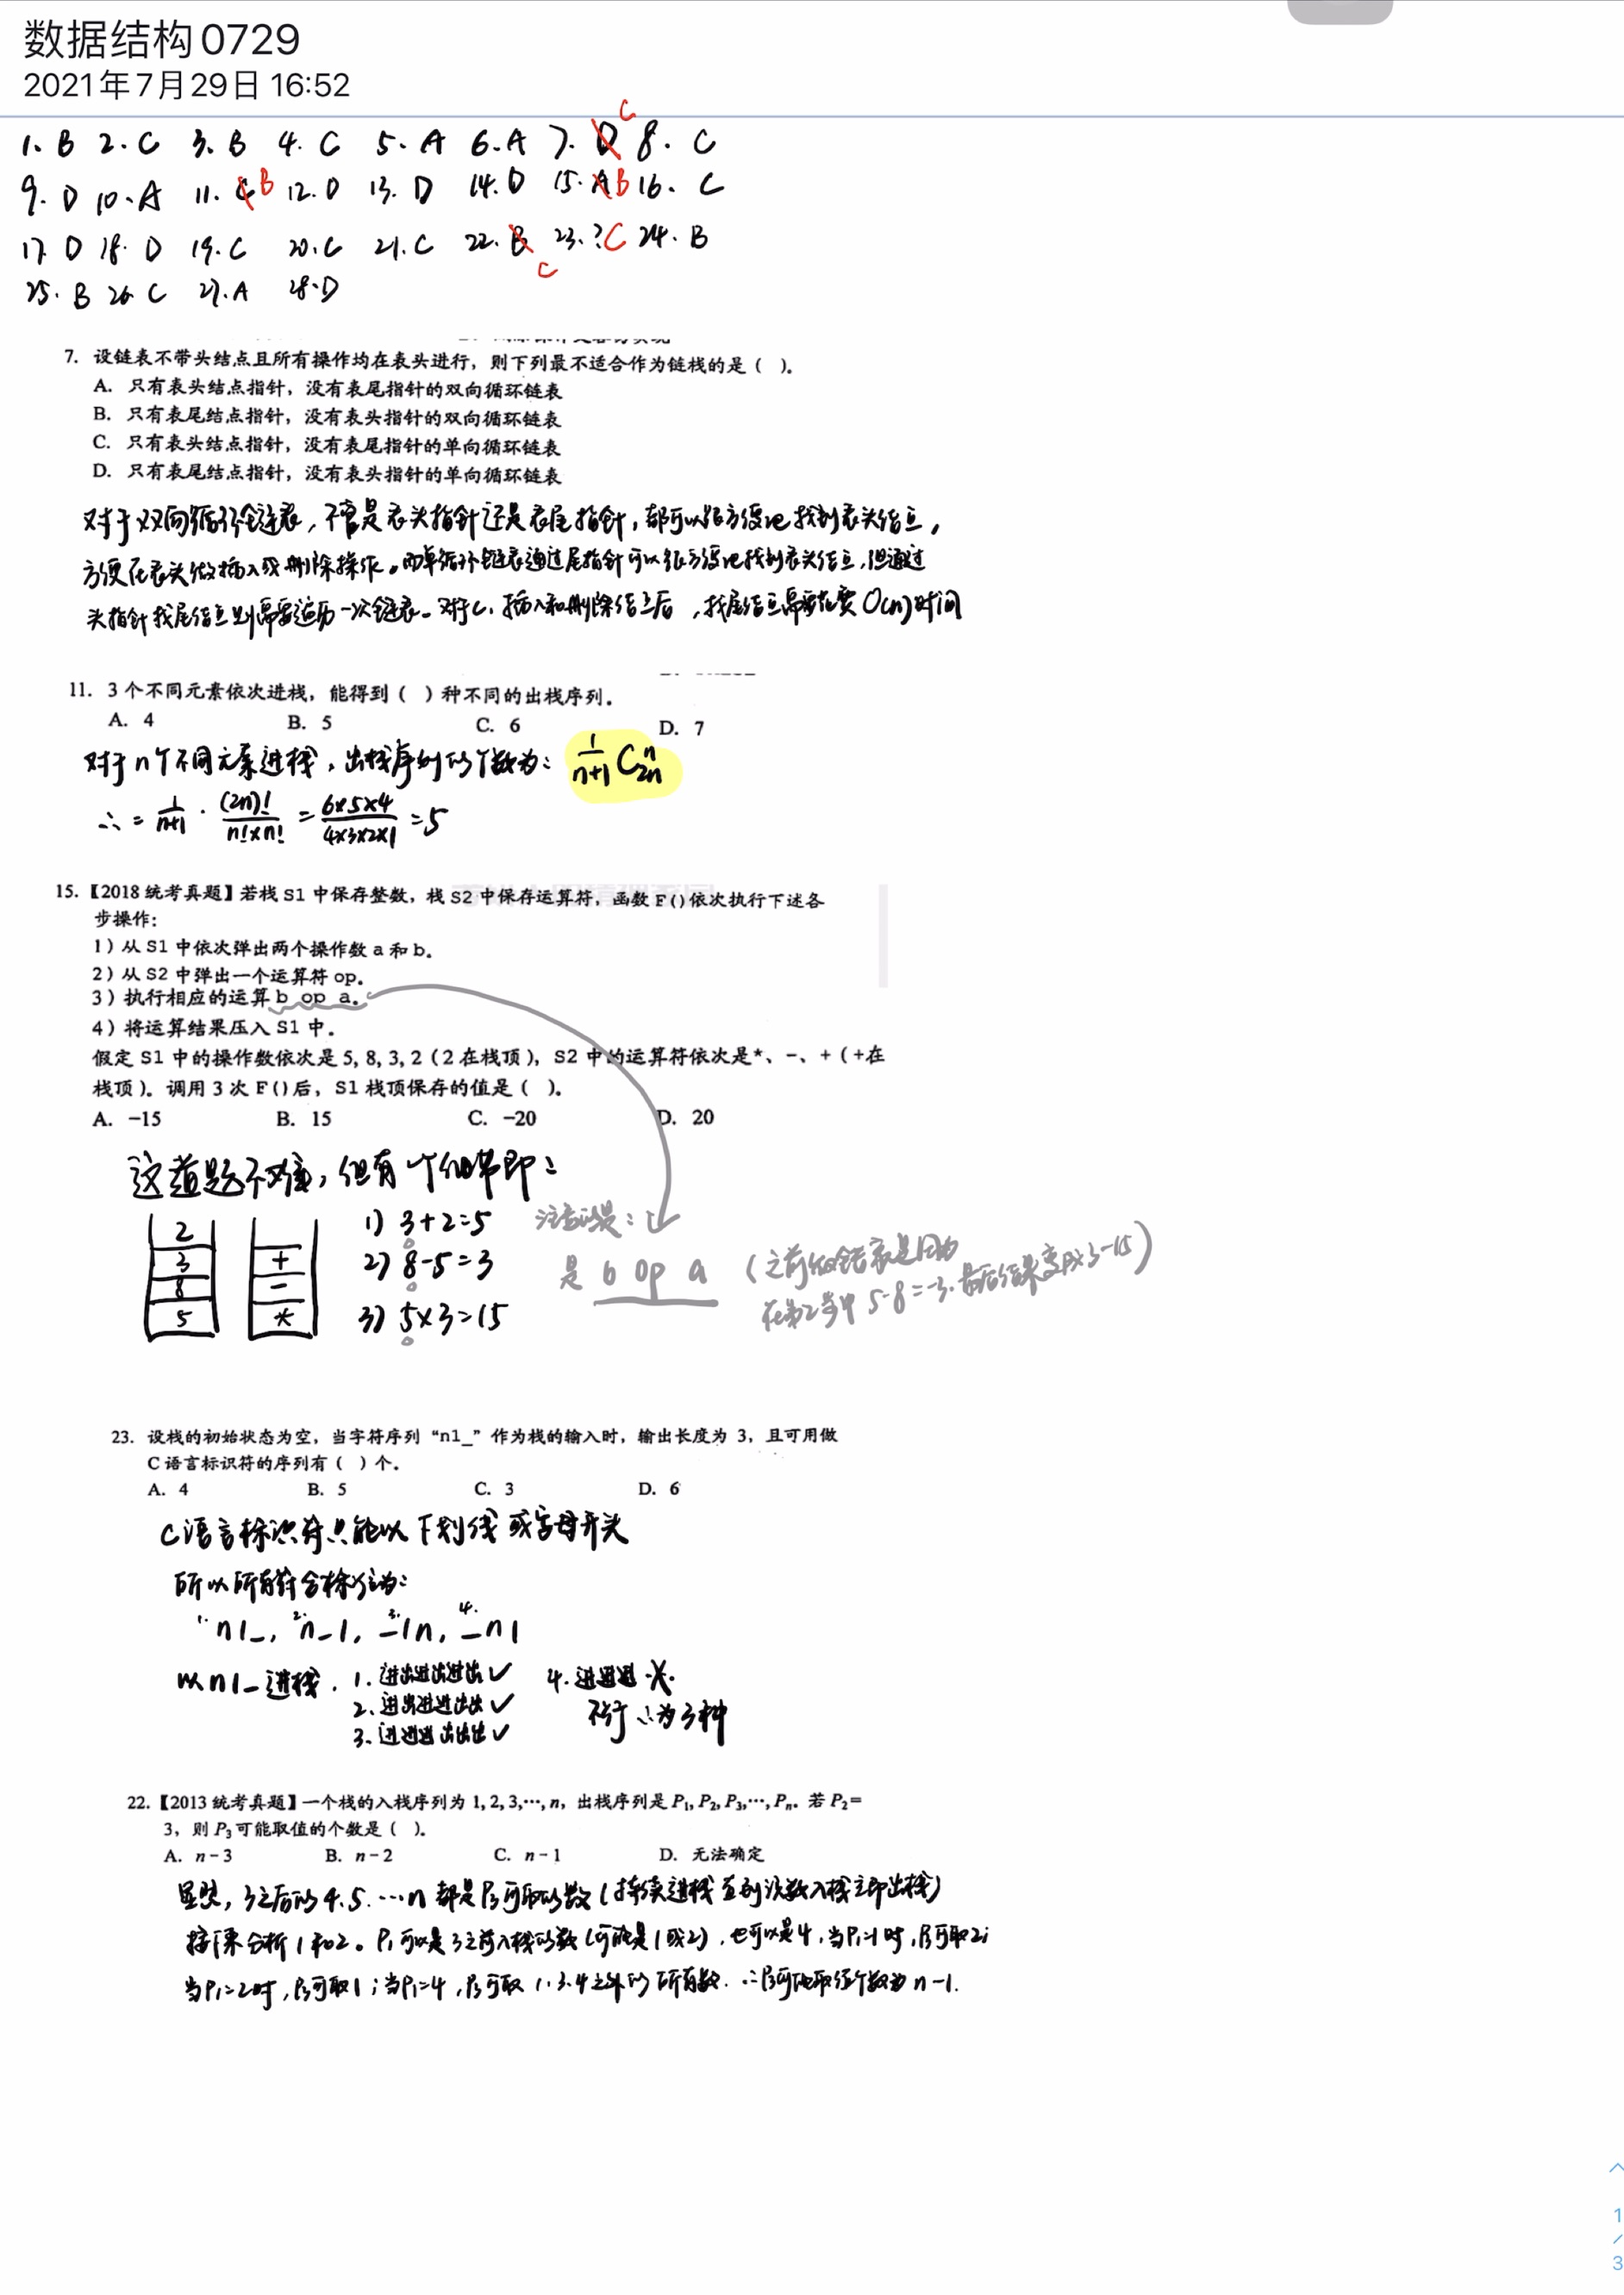 数据结构0729
2021年7月29日 16:52
1. B 2. C 3. B 4. C 5. A 6. A 7. D C 8. C
9. D 10. A 11. C B 12. D 13. D 14. D 15. A B 16. C
17. D 18. D 19. C 20. C 21. C 22. B C 23. ? C 24. B
25. B 26. C 27. A 28. D
7. 设链表不带头结点且所有操作均在表头进行，则下列最不适合作为链栈的是（ ）。
A. 只有表头结点指针，没有表尾指针的双向循环链表
B. 只有表尾结点指针，没有表头指针的双向循环链表
C. 只有表头结点指针，没有表尾指针的单向循环链表
D. 只有表尾结点指针，没有表头指针的单向循环链表
对于双向循环链表，不管是表头指针还是表尾指针，都可以很方便地找到表头结点，
方便在表头做插入或删除操作。而单循环链表通过尾指针可以很方便地找到表头结点，但通过
头指针找尾结点则需要遍历一次链表。对于C，插入和删除结点后，找尾结点需要花费O(n)时间
11. 3个不同元素依次进栈，能得到（ ）种不同的出栈序列。
A. 4 B. 5 C. 6 D. 7
对于n个不同元素进栈，出栈序列的个数为： 1/(n+1) C_{2n}^{n}
∴ = 1/(n+1) · (2n)!/(n!×n!) = 6×5×4/(4×3×2×1) = 5
15.【2018统考真题】若栈S1中保存整数，栈S2中保存运算符，函数F()依次执行下述各
步操作：
1）从S1中依次弹出两个操作数a和b。
2）从S2中弹出一个运算符op。
3）执行相应的运算b op a。
4）将运算结果压入S1中。
假定S1中的操作数依次是5, 8, 3, 2（2在栈顶），S2中的运算符依次是*、-、+（+在
栈顶）。调用3次F()后，S1栈顶保存的值是（ ）。
A. −15 B. 15 C. −20 D. 20
这道题不难，但有个细节即：
2
3
8
5
+
-
*
1) 3+2=5
2) 8-5=3
3) 5×3=15
注意的是：
是 b op a
（之前做错就是因为
在第2步中 5-8=-3.最后结果变成了-15）
23. 设栈的初始状态为空，当字符序列“n1_”作为栈的输入时，输出长度为 3，且可用做
C语言标识符的序列有（ ）个。
A. 4 B. 5 C. 3 D. 6
C语言标识符只能以下划线或字母开头
所以所有符合标准为：
1. n1_, 2. n_1, 3. _1n, 4. _n1
以n1_进栈. 1. 进出进出进出 ✓ 4. 进进进 ×.
2. 进出进进出出 ✓ 不行 ∴为3种
3. 进进进出出出 ✓
22.【2013统考真题】一个栈的入栈序列为 1, 2, 3,⋯, n，出栈序列是 P1, P2, P3,⋯, Pn. 若 P2=
3，则 P3可能取值的个数是（ ）。
A. n−3 B. n−2 C. n−1 D. 无法确定
显然，3之后的4.5.⋯n 都是P3可取的数（持续进栈直到该数入栈立即出栈）
接下来分析1和2。P1可以是3之前入栈的数（可能是1或2），也可以是4，当P1=1时，P3可取2；
当P1=2时，P3可取1；当P1=4，P3可取1.3.4之外的所有数. ∴P3可能取值个数为n-1.
1
/
3